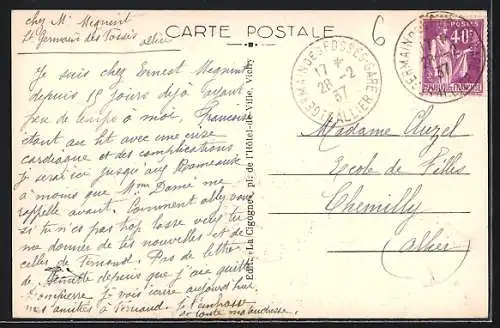 chez Mr Mequint
St Germain des Fossés
Allier
CARTE POSTALE
6
40c
ST GERMAIN DES FOSSES-GARE
17 *
28 -2
37
ALLIER
Je suis chez Ernest Mequint
depuis 15 jours déjà ayant
peu de temps à moi, Francine
étant au lit avec une crise
cardiaque et des complications
Je serai ici jusqu aux Rameaux
à moins que Mme Dame me
rappelle avant. Comment allez vous
si tu n'es pas trop lasse veux tu
me donner de tes nouvelles et de
celles de Fernand. Pas de lettre
de depuis que j'ai quitté
Dompierre Je vois Pierre aujourd'hui
mes amitiés à Fernand Je t'embrasse
Edit. "La Cigogne", pl. de l'Hôtel-de-Ville, Vichy
Madame Cluzel
Ecole de Filles
Chemilly
(Allier)